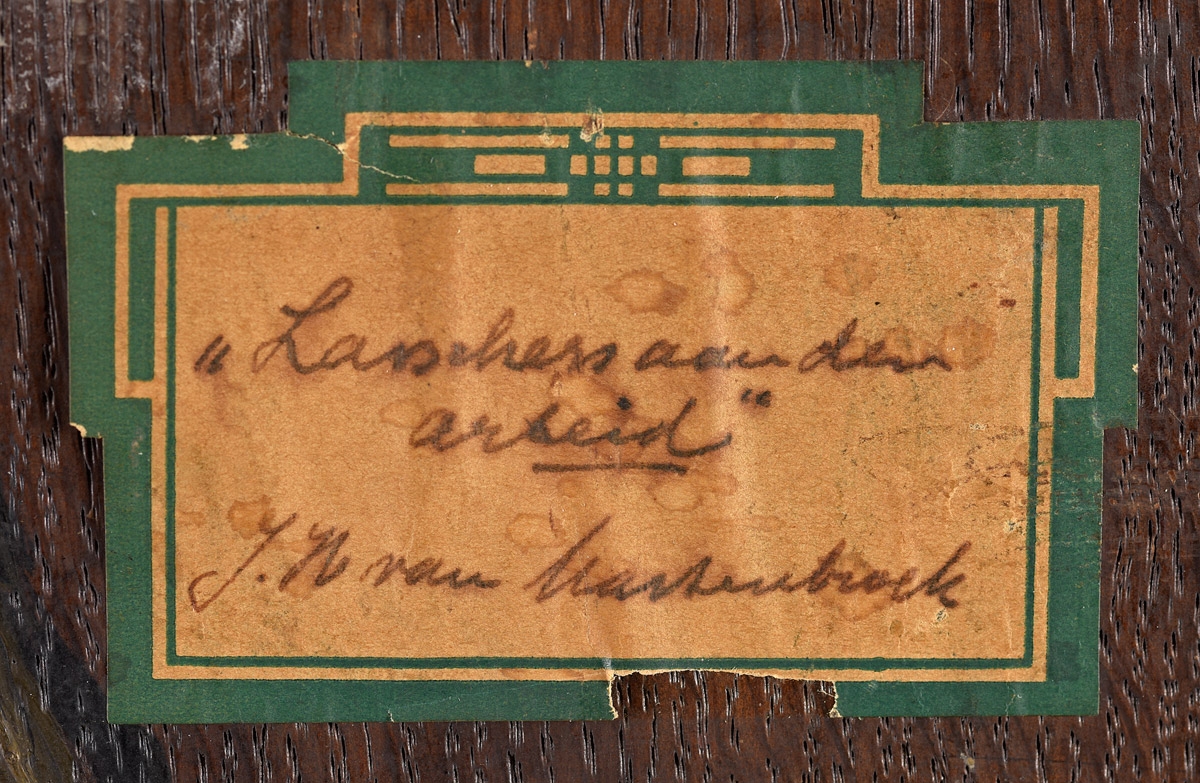 „Lasschers aan den
arbeid"
J. H van Mastenbroek